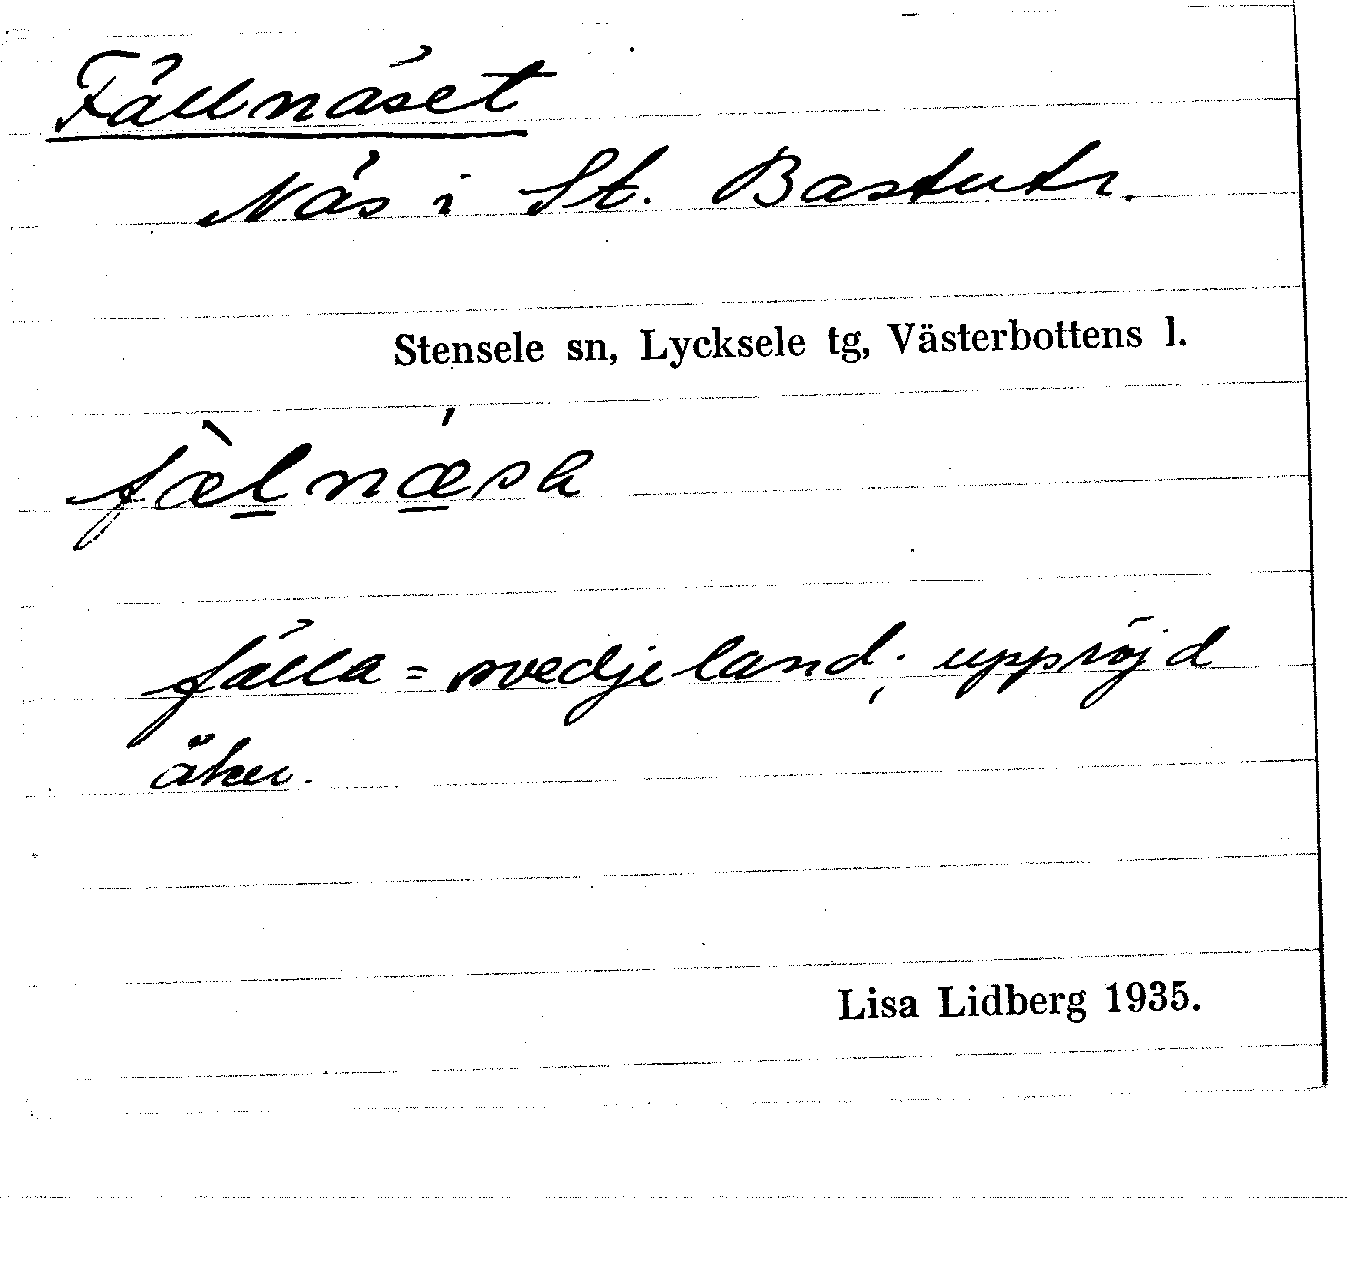 Fällnäset
Näs i St. Bastutr.
Stensele sn, Lycksele tg, Västerbottens l.
fæ̀lnǽsa
fälla = svedjeland; uppröjd
åker.
Lisa Lidberg 1935.